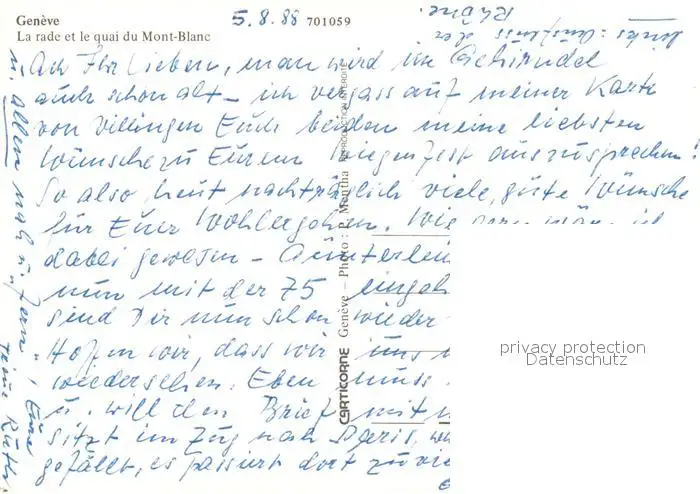 Genève
La rade et le quai du Mont-Blanc
5.8.88 701059
links: Ausfluss der Rhône.
Ach Ihr Lieben, man wird im Gehirndel
auch schon alt – ich vergass auf meiner Karte
von Villingen Euch beiden meine liebsten
Wünsche zu Eurem Wiegenfest auszusprechen!
So also heut nachträglich viele, gute Wünsche
für Euer Wohlergehen. Wie gern wär ich
dabei gewesen –
nun mit der 75
sind wir nun schon wieder
Hoffen wir, dass wir uns
wiedersehen. Eben muss
u. will den Brief mit
sitzt im Zug nach Paris,
gefällt, es passiert dort zu vie
Eure
CARTICORNE Genève – Photo : P. Mentha REPRODUCTION INTERDITE
privacy protection
Datenschutz